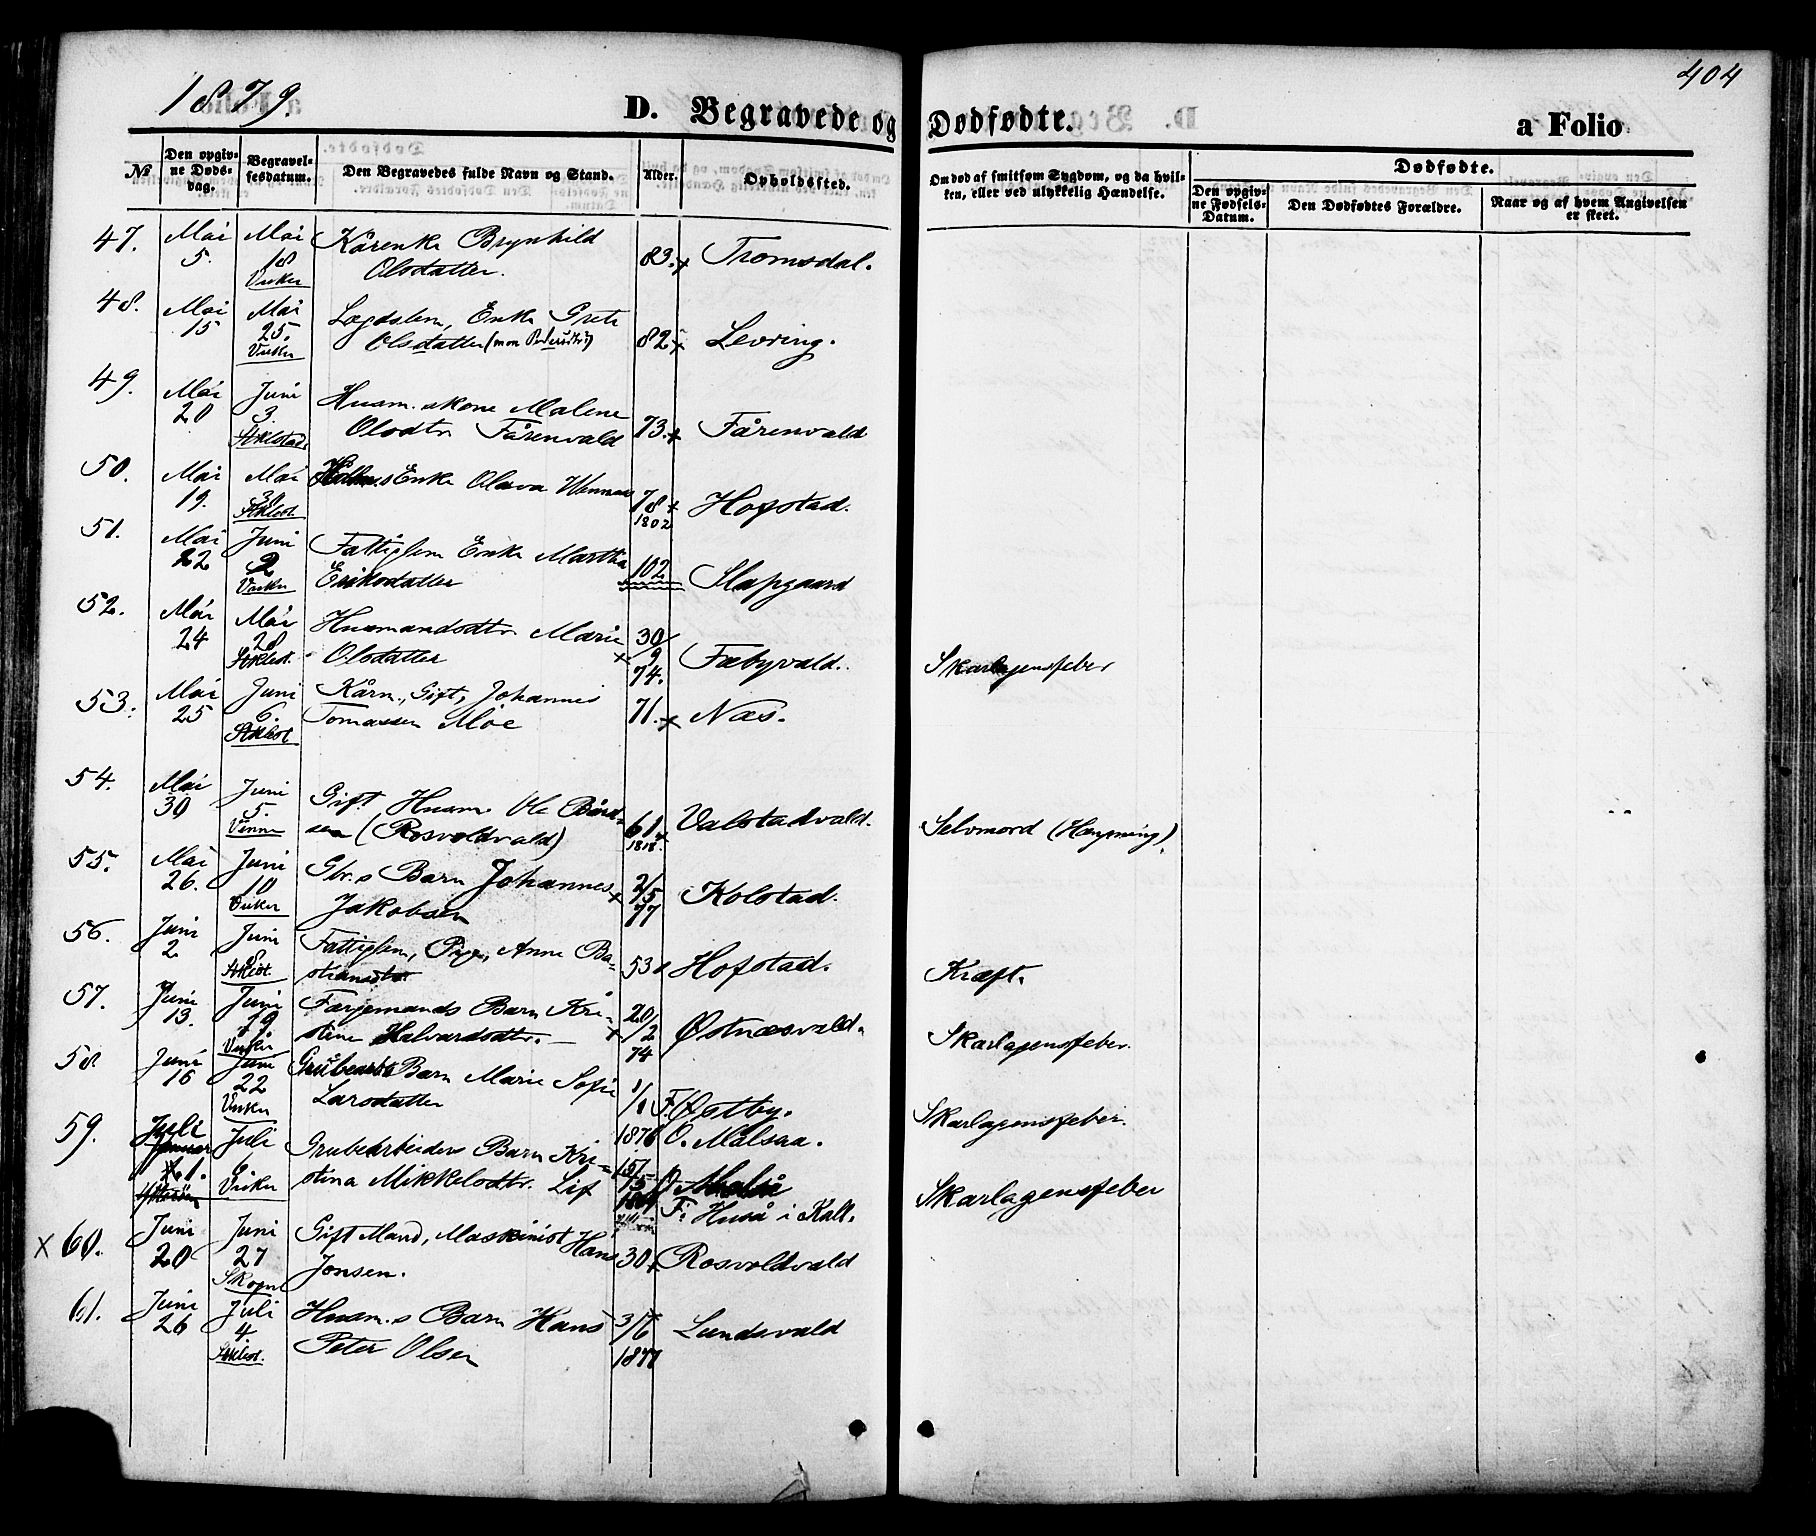 1879.
404
D. Begravede og Dødfødte.
a Folio
№
Den opgivne Døds-dag.
Begravelsesdatum.
Den Begravedes fulde Navn og Stand.
Alder.
Opholdssted.
Om død af smitsom Sygdom, og da hvilken, eller ved ulykkelig Hændelse.
Dødfødte.
Den opgivne Fødsels-Datum.
Den Dødfødtes Forældre.
Naar og af hvem Angivelsen er skeet.
47. Mai 5. Mai 18 Vuker Kårenke Brynhild
Olsdatter. 83. x Tromsdal.
48. Mai 15 Mai 25. Vuker Lægdslem, Enke Grete
Olsdatter 82 x Levring.
49. Mai 20 Juni 3. Stiklestad Husm.skone Malene
Olsdtr Fårenvald 73. x Fårenvald
50. Mai 19. Mai 30 Stiklest. Enke Olava 78 x 1802 Hofstad.
51. Mai 22 Juni 2 Vuker Fattiglem Enke Martha
Eriksdatter 102 Slapgaard
52. Mai 24 Mai 28 Stiklest. Husmandsdtr Marie
Olsdatter x 30/9 74. Fæbyvald. Skarlagensfeber
53. Mai 25 Juni 6. Stiklest Kårm., Gift, Johannes
Tomassen Moe 71. x Næs.
54. Mai 30 Juni 5. Vinne Gift Husm. Ole Bård-
sen (Rosvoldvald) 61 x 1818. Valstadvald. Selvmord (Hængning).
55. Mai 26. Juni 10 Vuker Gbr.s Barn Johannes
Jakobsen x 2/5 77 Kolstad.
56. Juni 2. Juni 8 Stiklest. Fattiglem, Pige, Anne Ba-
stiansdtr 53 x Hofstad. Kræft.
57. Juni 13. Juni 19. Vuker Færjemands Barn Kri-
stine Halvardsdtr. x 20/12 74 Østnæsvald. Skarlagensfeber.
58 Juni 16 Juni 22 Vuker Grubearbs Barn Marie Sofie
Larsdatter 1/1 1876 F. Østby.
O. Målsaa. Skarlagensfeber.
59. Juli 1. Juli 6 Vuker Grubearbeiders Barn Kri-
stina Mikkelsdtr. Lif 15/5
F. Huså i Kall. Skarlagensfeber
x 60. Juni 20 Juni 27 Skogn Gift Mand, Maskinist Hans
Jonsen. 30 x Rosvoldvald
61. Juni 26 Juli 4. Stiklest. Husm.s Barn Hans
Peter Olsen 3/6 1877 Lundsvald